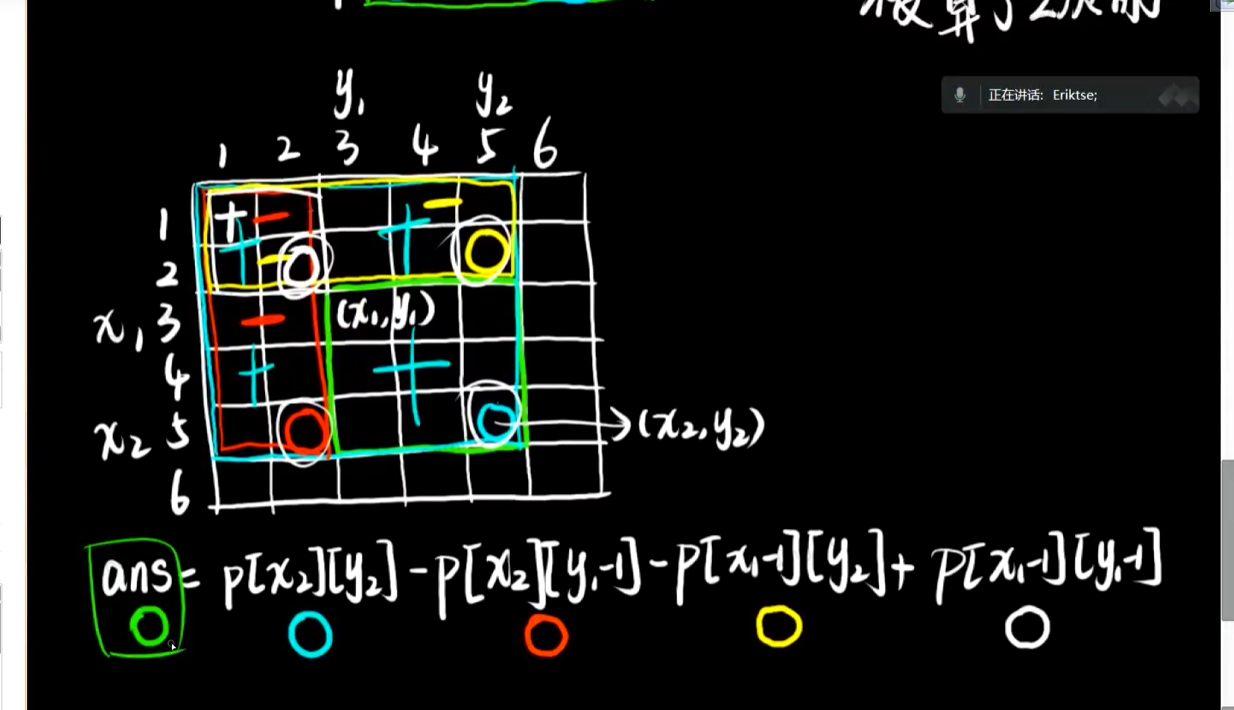 正在讲话: Eriktse;
y₁ y₂
1 2 3 4 5 6
1
2
x₁ 3 (x₁,y₁)
4
x₂ 5 (x₂,y₂)
6
ans = p[x₂][y₂] - p[x₂][y₁-1] - p[x₁-1][y₂] + p[x₁-1][y₁-1]